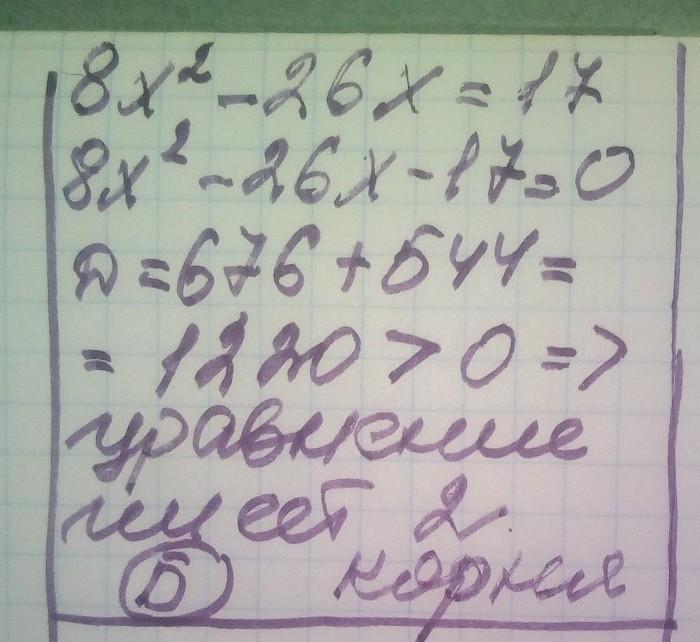 8x² - 26x = 17
8x² - 26x - 17 = 0
D = 676 + 544 =
= 1220 > 0 =>
уравнение
имеет 2
Б корня